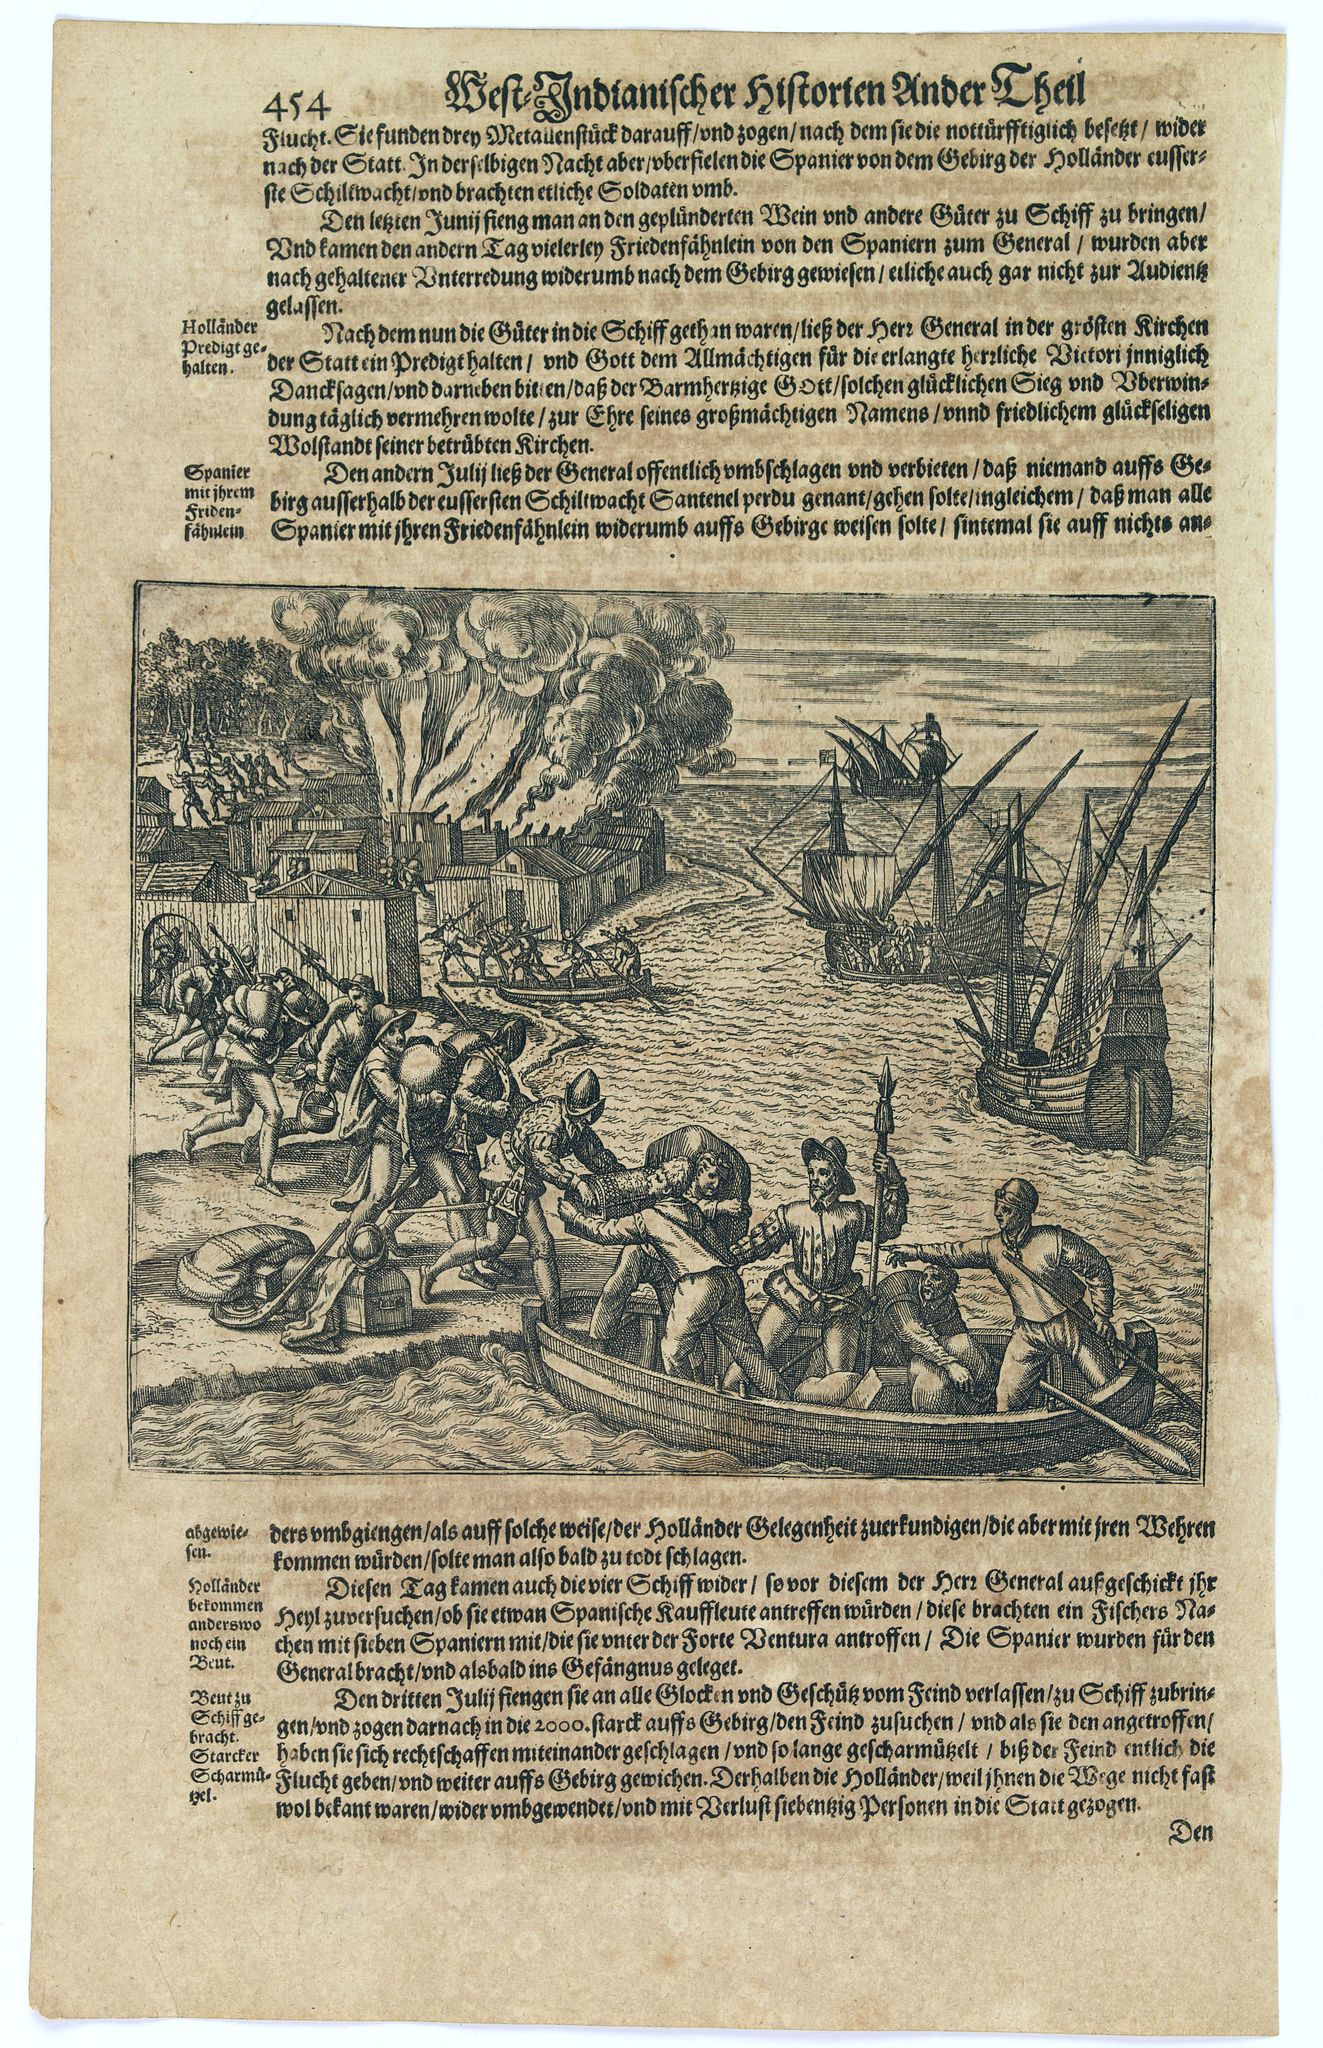 454
West-Indianischer Historien Ander Theil
Flucht. Sie funden drey Metallenstück darauff/vnd zogen/nach dem sie die nottürfftiglich besetzt/wider
nach der Statt. In derselbigen Nacht aber/vberfielen die Spanier von dem Gebirg der Holländer eusser-
ste Schiltwacht/vnd brachten etliche Soldaten vmb.
Den letzten Junij fieng man an den geplünderten Wein vnd andere Güter zu Schiff zu bringen/
Vnd kamen den andern Tag vielerley Friedenfähnlein von den Spaniern zum General/wurden aber
nach gehaltener Vnterredung widerumb nach dem Gebirg gewiesen/etliche auch gar nicht zur Audientz
gelassen.
Holländer
Predigt ge-
halten.
Nach dem nun die Güter in die Schiff gethan waren/ließ der Herr General in der grösten Kirchen
der Statt ein Predigt halten/vnd Gott dem Allmächtigen für die erlangte herrliche Victori jnniglich
Dancksagen/vnd darneben bitten/daß der Barmhertzige GOtt/solchen glücklichen Sieg vnd Vberwin-
dung täglich vermehren wolte/zur Ehre seines großmächtigen Namens/vnnd friedlichem glückseligen
Wolstandt seiner betrübten Kirchen.
Spanier
mit jhrem
Friden-
fähnlein
Den andern Julij ließ der General offentlich vmbschlagen vnd verbieten/daß niemand auffs Ge-
birg ausserhalb der eussersten Schiltwacht Santenel perdu genant/gehen solte/ingleichem/daß man alle
Spanier mit jhren Friedenfähnlein widerumb auffs Gebirge weisen solte/sintemal sie auff nichts an-
abgewie-
sen.
ders vmbgiengen/als auff solche weise/der Holländer Gelegenheit zuerkundigen/die aber mit jren Wehren
kommen würden/solte man also bald zu todt schlagen.
Holländer
bekommen
anderswo
noch ein
Beut.
Diesen Tag kamen auch die vier Schiff wider/so vor diesem der Herr General außgeschickt jhr
Heyl zuversuchen/ob sie etwan Spanische Kauffleute antreffen würden/diese brachten ein Fischers Na-
chen mit sieben Spaniern mit/die sie vnter der Forte Ventura antroffen/Die Spanier wurden für den
General bracht/vnd alsbald ins Gefängnus geleget.
Beut zu
Schiff ge-
bracht.
Starcker
Scharmü-
tzel.
Den dritten Julij fiengen sie an alle Glocken vnd Geschütz vom Feind verlassen/zu Schiff zubrin-
gen/vnd zogen darnach in die 2000. starck auffs Gebirg/den Feind zusuchen/vnd als sie den angetroffen/
haben sie sich rechtschaffen miteinander geschlagen/vnd so lange gescharmützelt/biß der Feind entlich die
Flucht geben/vnd weiter auffs Gebirg gewichen. Derhalben die Holländer/weil jhnen die Wege nicht fast
wol bekant waren/wider vmbgewendet/vnd mit Verlust siebentzig Personen in die Statt gezogen.
Den